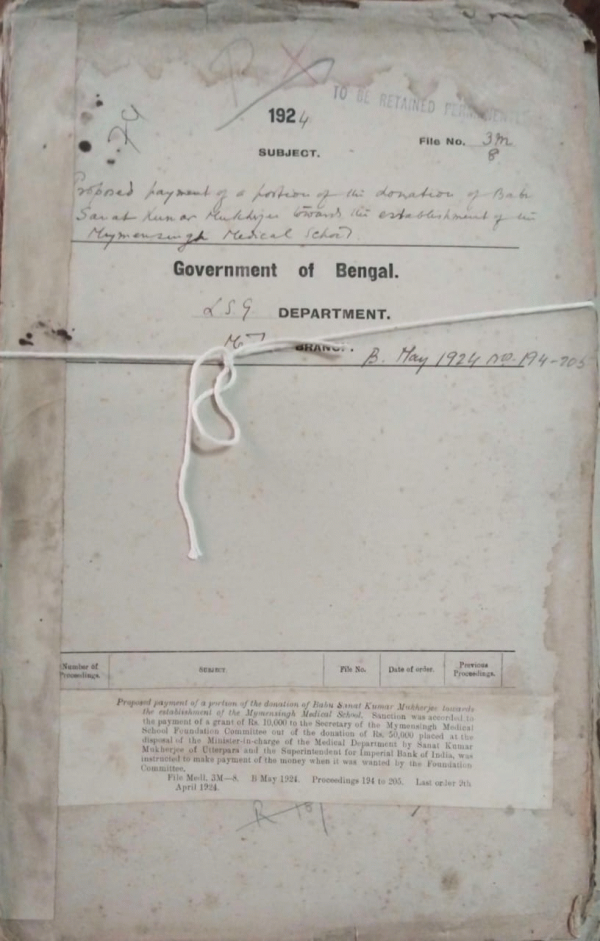 TO BE RETAINED
1924
File No. 3M
8
SUBJECT.
Proposed payment of a portion of the donation of Babu
Sanat Kumar Mukhjee towards the establishment of the
Mymensingh Medical School
Government of Bengal.
L S G DEPARTMENT.
BRANCH.
B. May 1924 no. 194-205
Number of Proceedings.
SUBJECT
File No.
Date of order.
Previous Proceedings.
Proposed payment of a portion of the donation of Babu Sanat Kumar Mukherjee towards
the establishment of the Mymensingh Medical School. Sanction was accorded to
the payment of a grant of Rs. 10,000 to the Secretary of the Mymensingh Medical
School Foundation Committee out of the donation of Rs. 50,000 placed at the
disposal of the Minister-in-charge of the Medical Department by Sanat Kumar
Mukherjee of Utterpara and the Superintendent for Imperial Bank of India, was
instructed to make payment of the money when it was wanted by the Foundation
Committee.
File Medl. 3M—8. B May 1924. Proceedings 194 to 205. Last order 2th
April 1924.